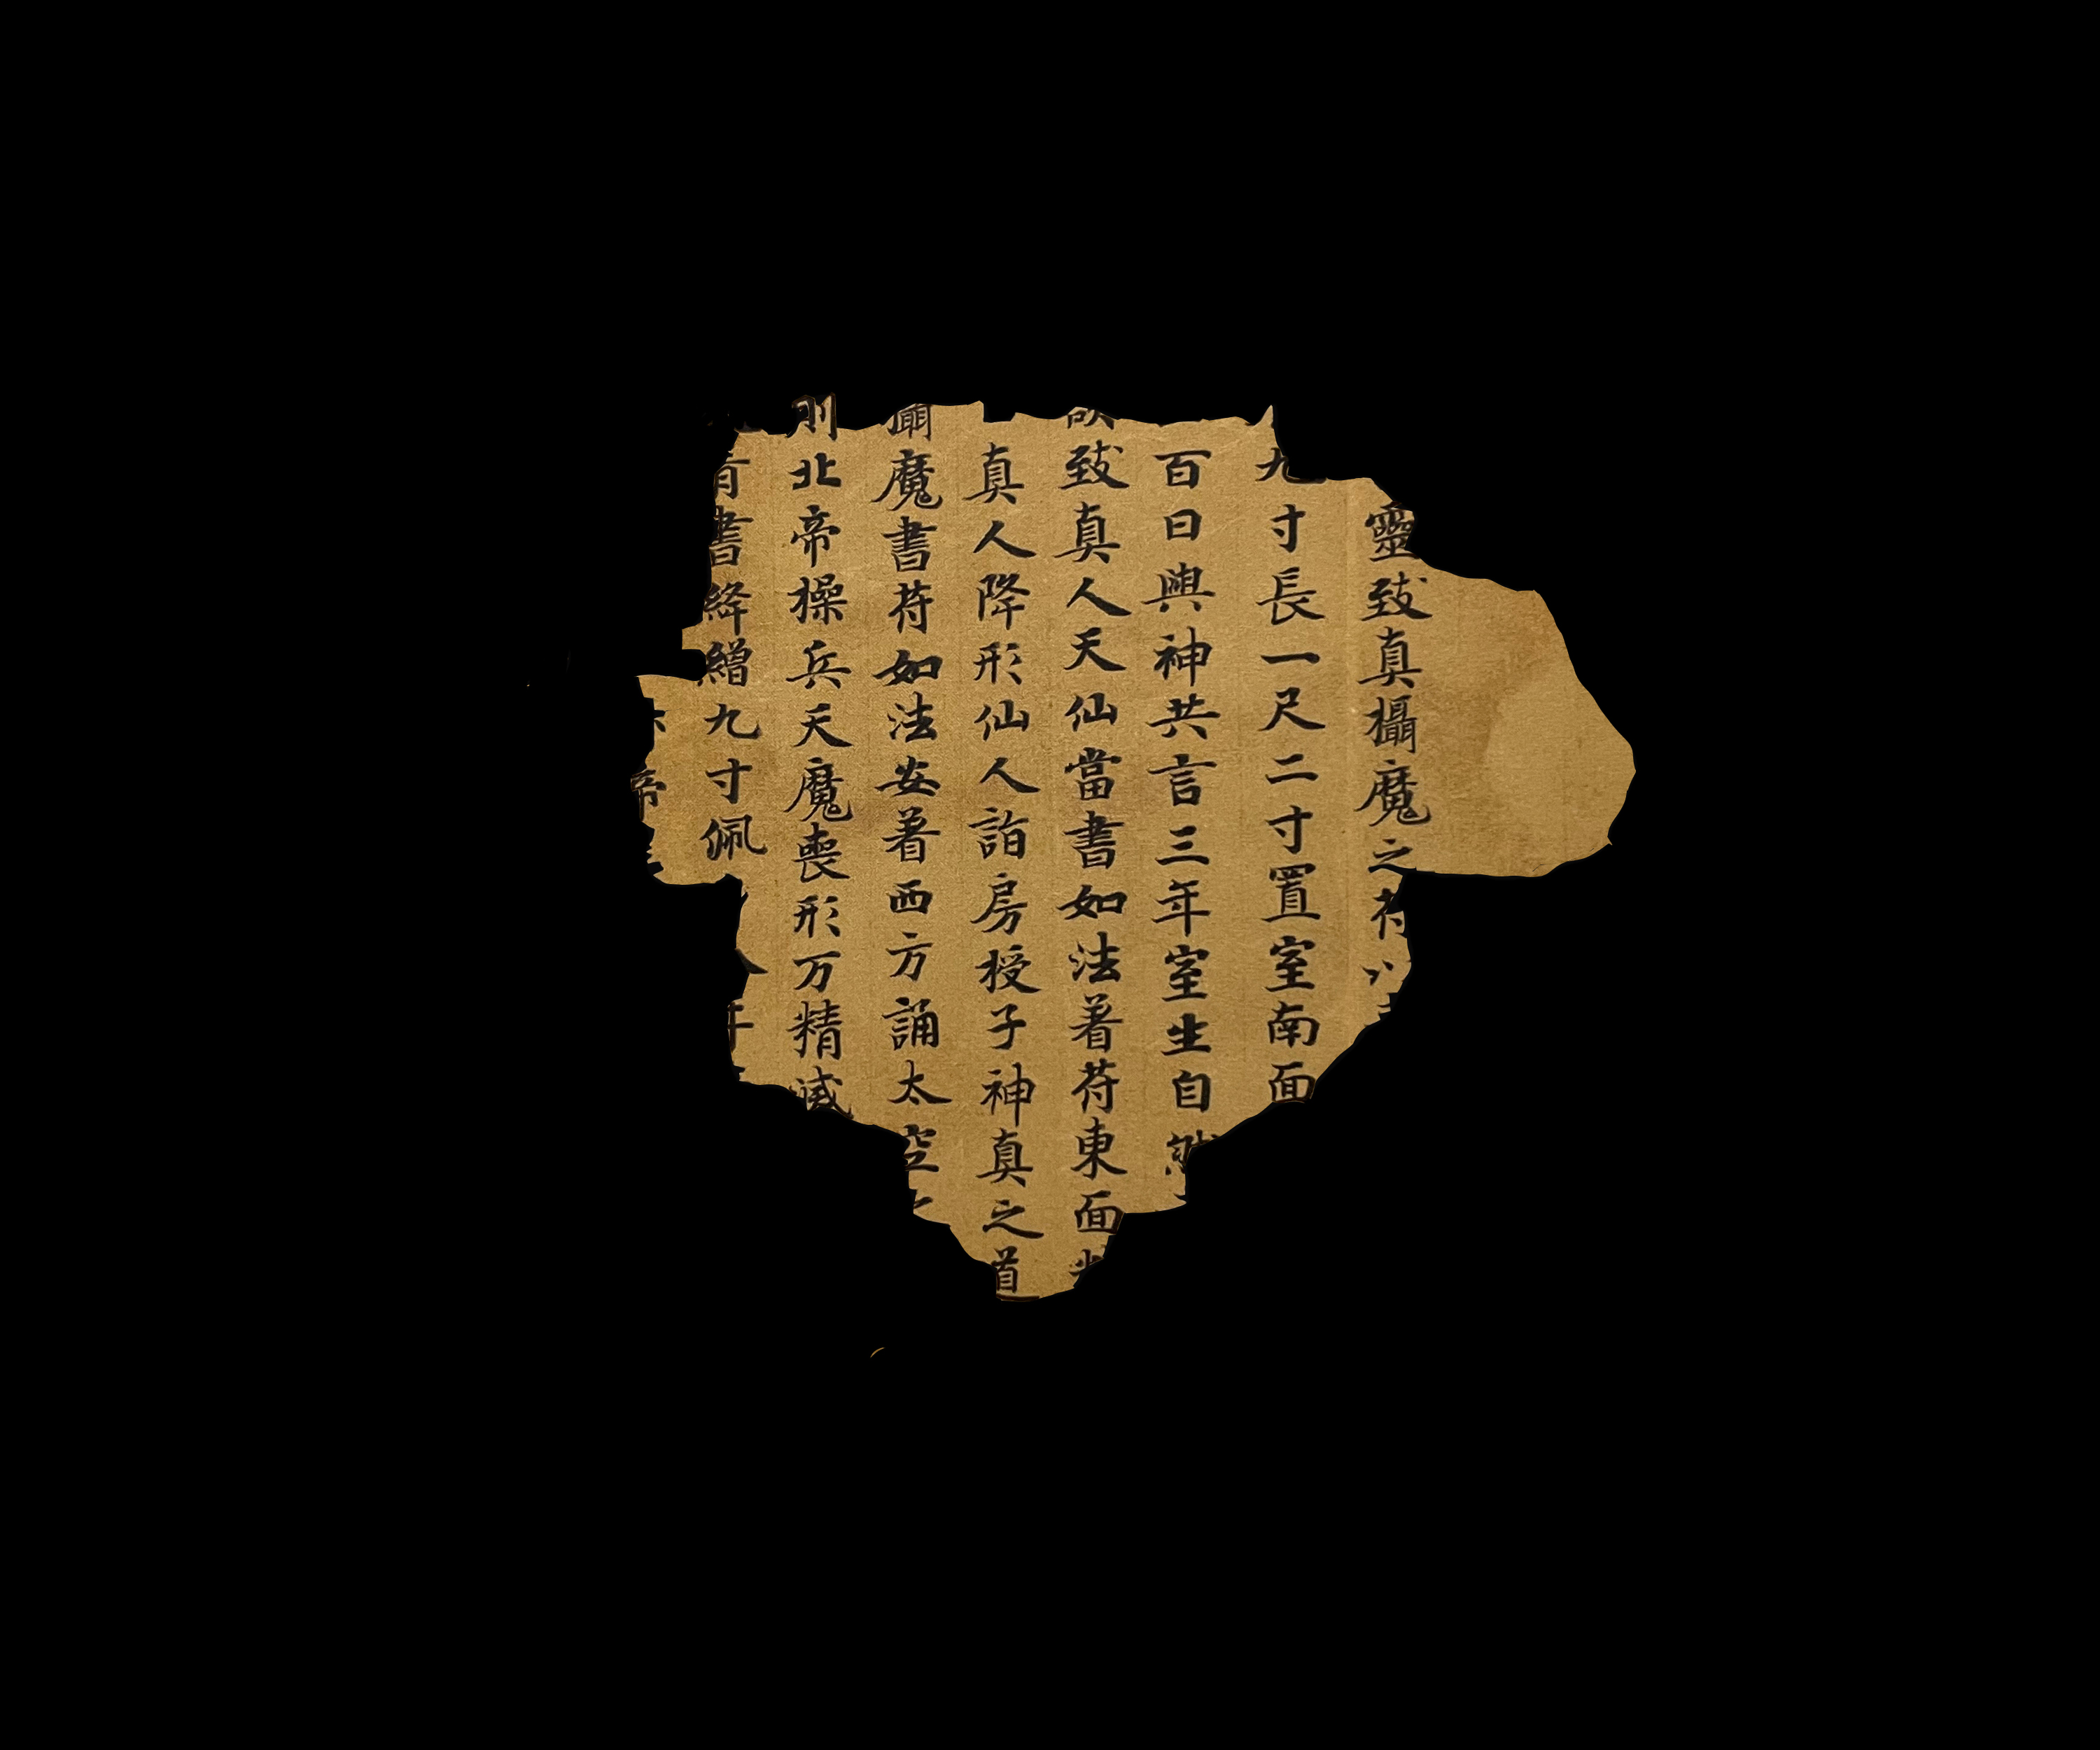 靈致真攝魔之符
九寸長一尺二寸置室南面
百日與神共言三年室生自然
致真人天仙當書如法著符東面
真人降形仙人詣房授子神真之道
魔書符如法安著西方誦太空
北帝操兵天魔喪形万精滅
書絳繒九寸佩
帝